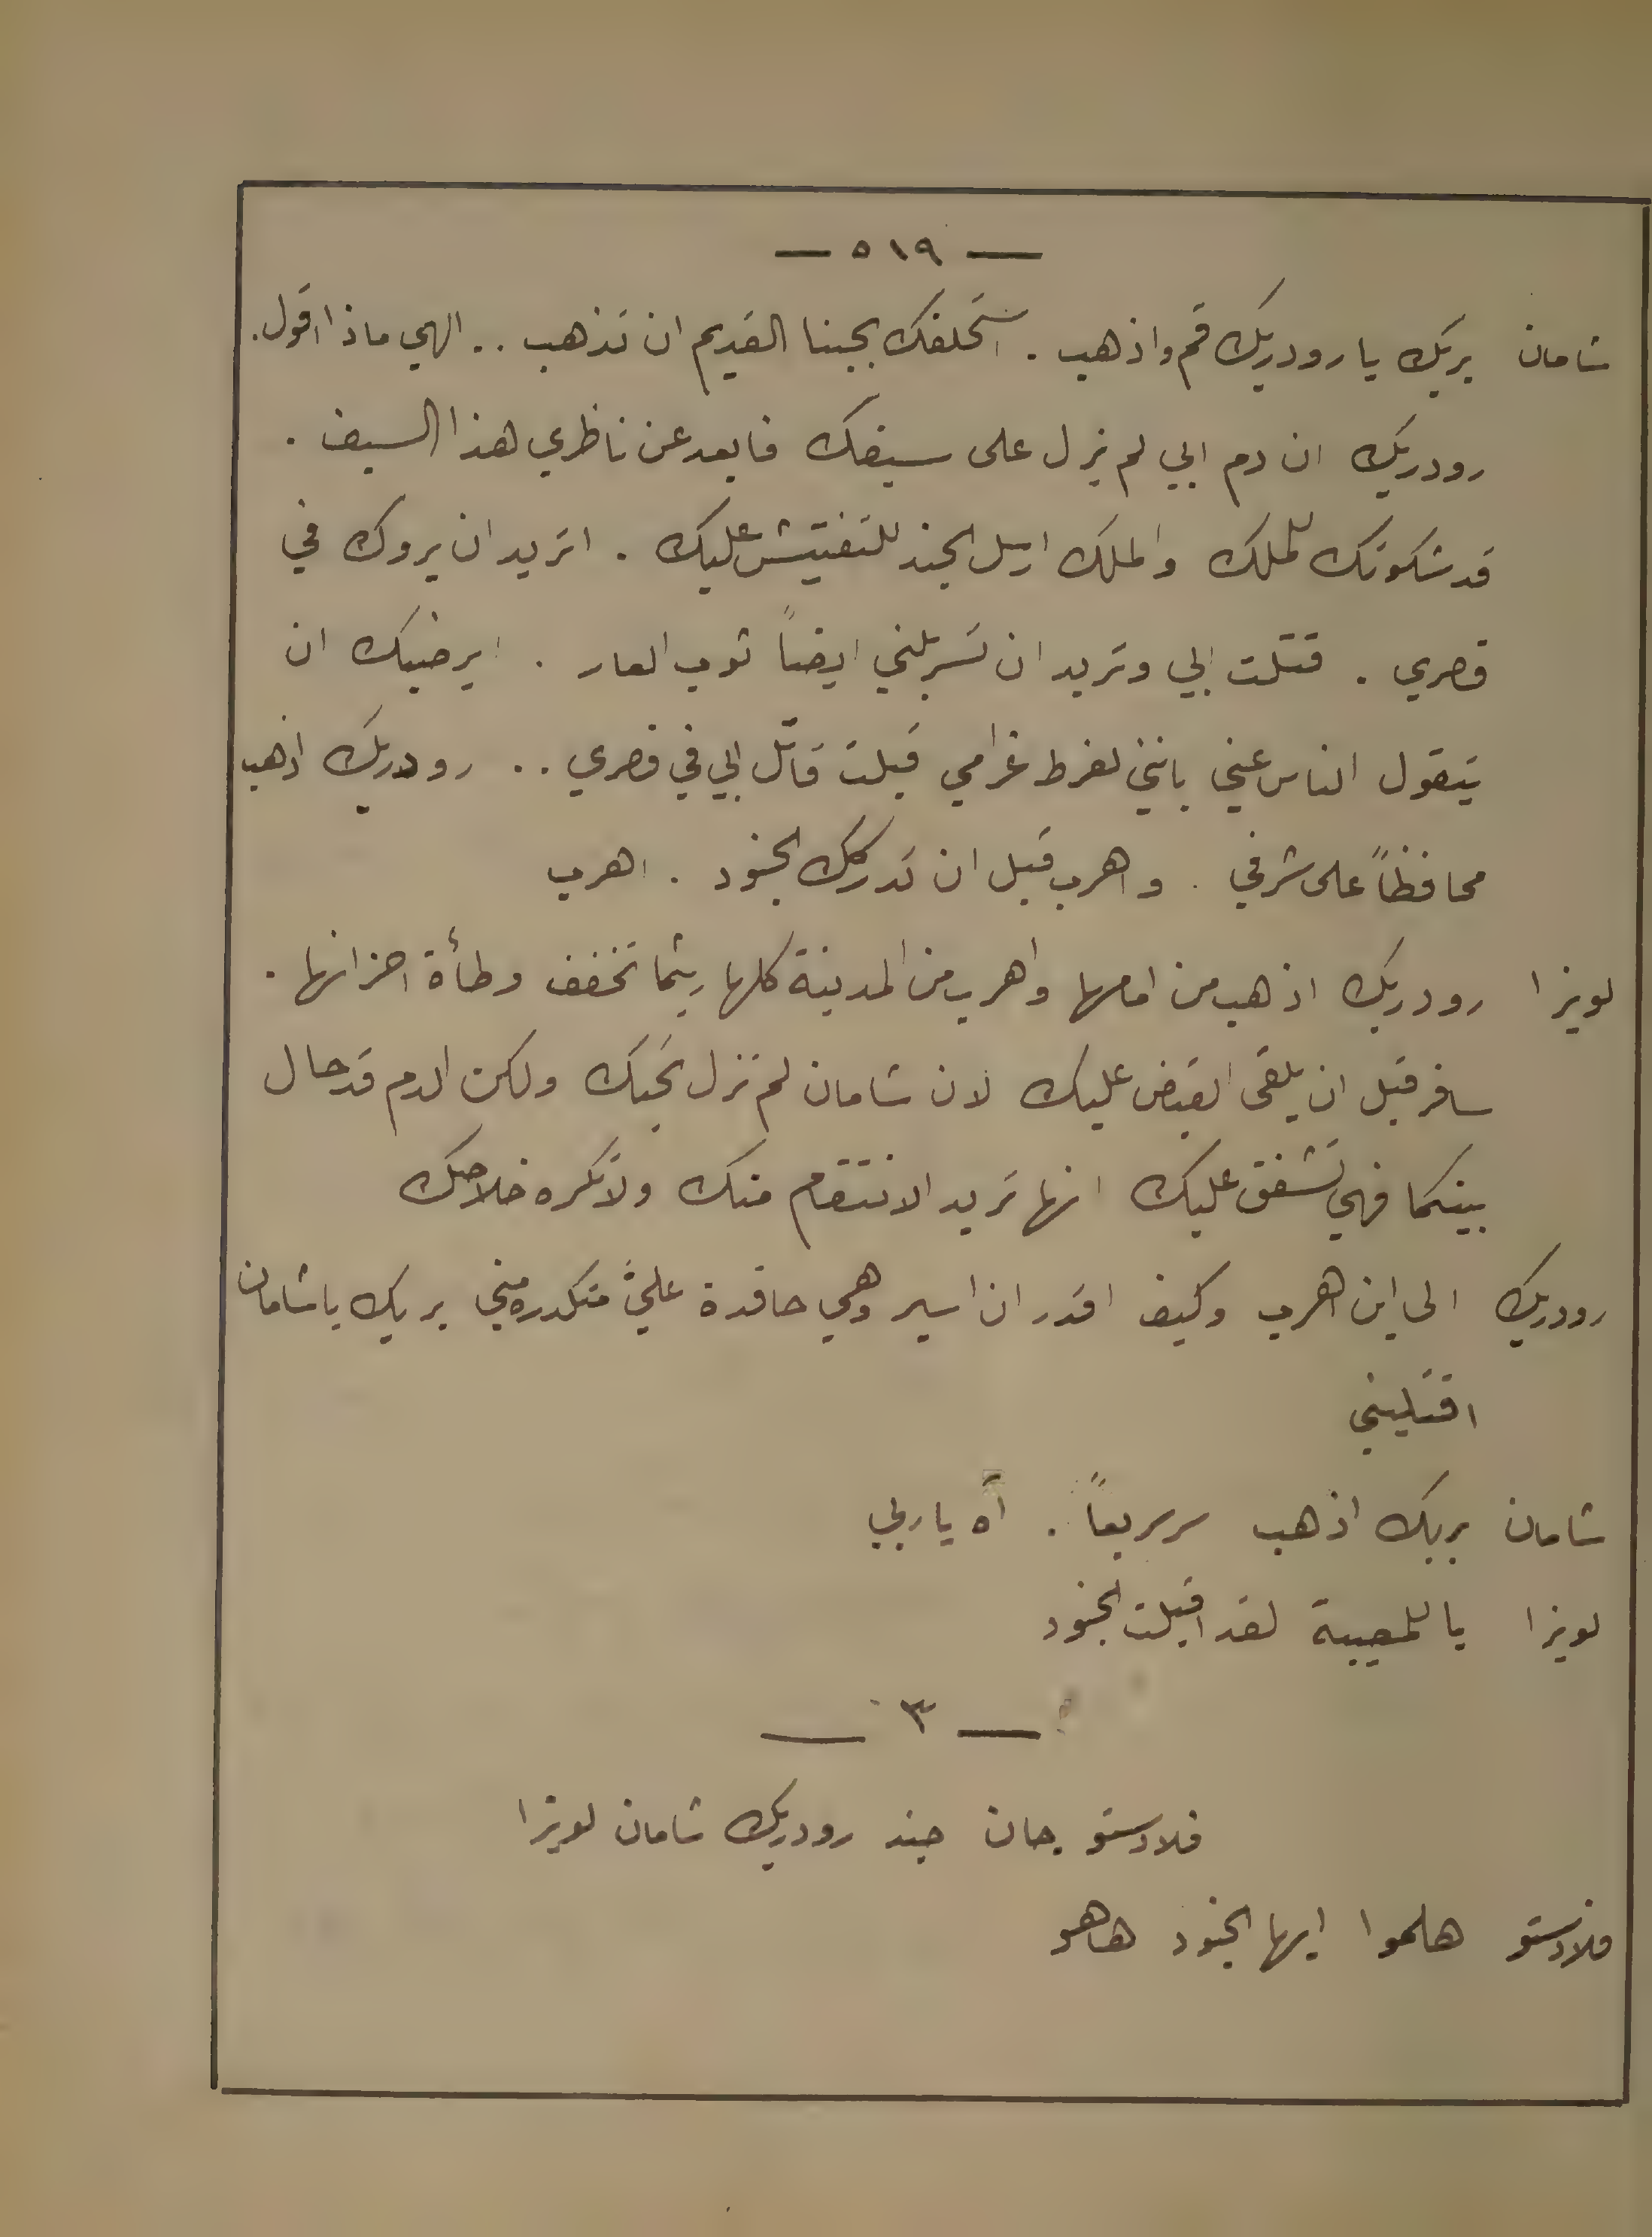 — ٥١٩ —
شامان بربك يا رودريك قم واذهب . استحلفك بحبنا القديم ان تذهب .. الهي ماذا اقول .
رودريك ان دم ابي لم يزل على سيفك فابعد عن ناظري هذا السيف .
قد شكوتك للملك والملك ارسل الجند للتفتيش عليك . اتريد ان يروك في
قصري . قتلت ابي وتريد ان تسربلني ايضاً ثوب العار . ايرضيك ان
يتقول الناس عني بانني لفرط غرامي قبلت قاتل ابي في قصري .. رودريك اذهب
محافظاً على شرفي . واهرب قبل ان تدركك الجنود . اهرب
لويزا رودريك اذهب من امامها واهرب من المدينة كلها ريثما تخفف وطأة احزانها .
سافر قبل ان يلقى القبض عليك لان شامان لم تزل تحبك ولكن الدم قد حال
بينكما فهي تشفق عليك انها تريد الانتقام منك ولا تكره خلاصك
رودريك الى اين اهرب وكيف اقدر ان اسير وهي حاقدة عليّ متكدره مني بربك يا شامان
اقتليني
شامان بربك اذهب سريعاً . آه يا ربي
لويزا يا للمصيبة لقد اقبلت الجنود
— ٣ —
فلادستو جان جند رودريك شامان لويزا
فلادستو هلموا ايها الجنود هاهو